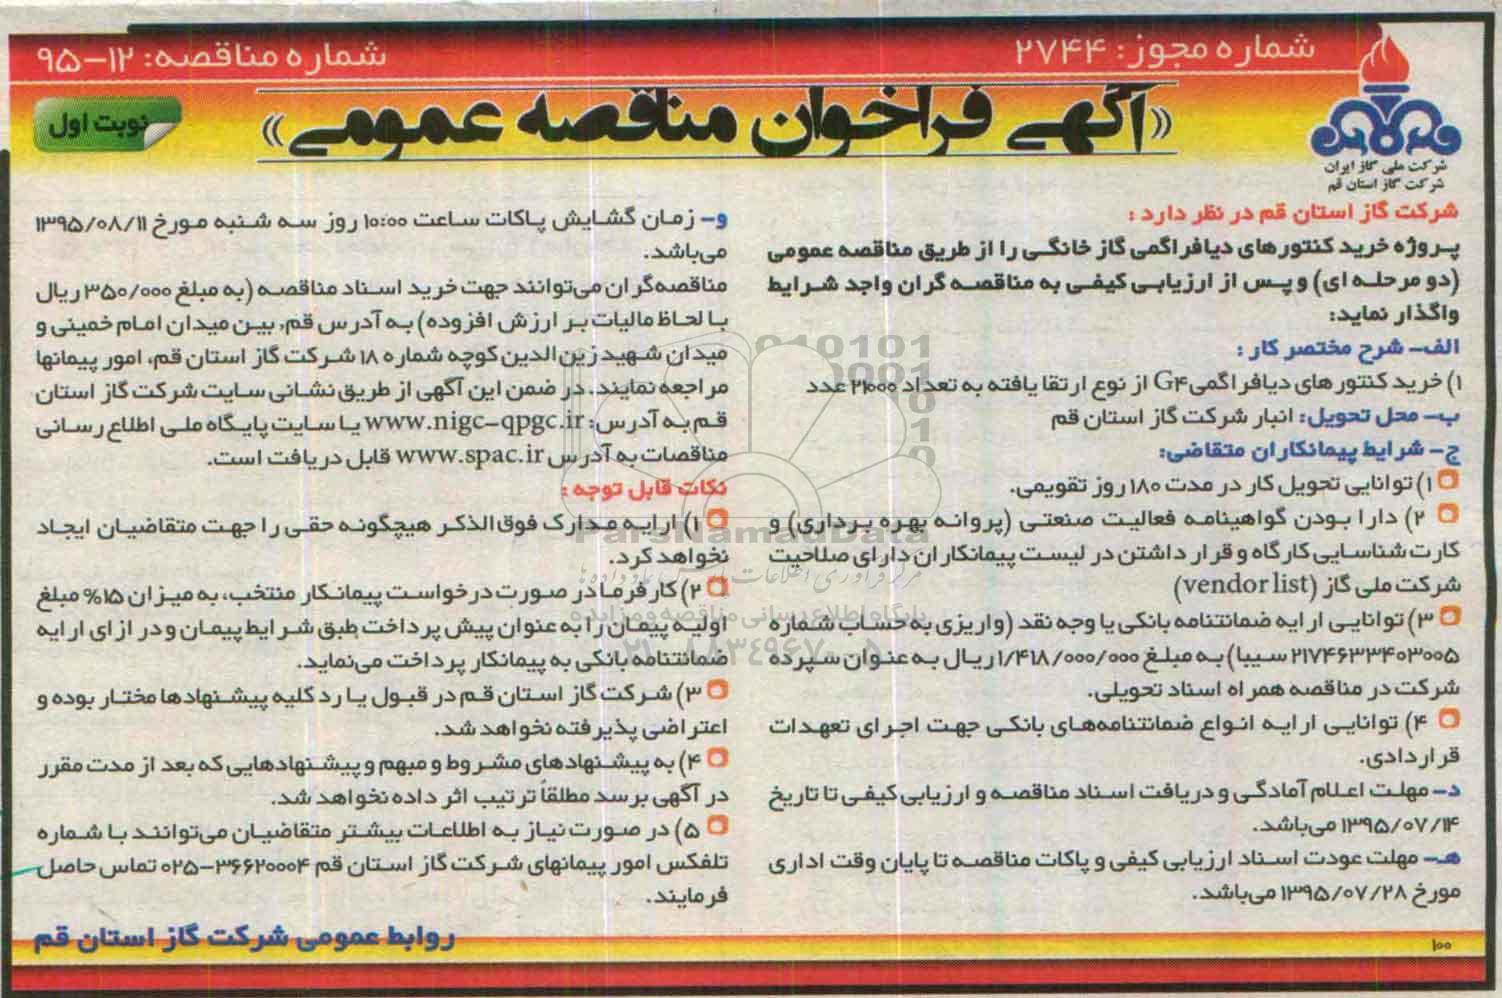 شماره مجوز: ۲۷۴۴
شماره مناقصه: ۱۲-۹۵
«آگهی فراخوان مناقصه عمومی»
نوبت اول
شرکت ملی گاز ایران
شرکت گاز استان قم
شرکت گاز استان قم در نظر دارد :
پروژه خرید کنتورهای دیافراگمی گاز خانگی را از طریق مناقصه عمومی
(دو مرحله ای) و پس از ارزیابی کیفی به مناقصه گران واجد شرایط
واگذار نماید:
الف- شرح مختصر کار :
۱) خرید کنتور های دیافراگمی G۴ از نوع ارتقا یافته به تعداد ۲۱۰۰۰ عدد
ب- محل تحویل: انبار شرکت گاز استان قم
ج- شرایط پیمانکاران متقاضی:
۱) توانایی تحویل کار در مدت ۱۸۰ روز تقویمی.
۲) دارا بودن گواهینامه فعالیت صنعتی (پروانه بهره برداری) و
کارت شناسایی کارگاه و قرار داشتن در لیست پیمانکاران دارای صلاحیت
شرکت ملی گاز (vendor list)
۳) توانایی ارایه ضمانتنامه بانکی یا وجه نقد (واریزی به حساب شماره
۲۱۷۴۶۳۳۴۰۳۰۰۵ سیبا) به مبلغ ۱/۴۱۸/۰۰۰/۰۰۰ ریال به عنوان سپرده
شرکت در مناقصه همراه اسناد تحویلی.
۴) توانایی ارایه انواع ضمانتنامه‌های بانکی جهت اجرای تعهدات
قراردادی.
د- مهلت اعلام آمادگی و دریافت اسناد مناقصه و ارزیابی کیفی تا تاریخ
۱۳۹۵/۰۷/۱۴ می‌باشد.
هـ- مهلت عودت اسناد ارزیابی کیفی و پاکات مناقصه تا پایان وقت اداری
مورخ ۱۳۹۵/۰۷/۲۸ می‌باشد.
و- زمان گشایش پاکات ساعت ۱۰:۰۰ روز سه شنبه مورخ ۱۳۹۵/۰۸/۱۱
می‌باشد.
مناقصه‌گران می‌توانند جهت خرید اسناد مناقصه (به مبلغ ۳۵۰/۰۰۰ ریال
با لحاظ مالیات بر ارزش افزوده) به آدرس قم، بین میدان امام خمینی و
میدان شهید زین الدین کوچه شماره ۱۸ شرکت گاز استان قم، امور پیمانها
مراجعه نمایند. در ضمن این آگهی از طریق نشانی سایت شرکت گاز استان
قم به آدرس: www.nigc-qpgc.ir یا سایت پایگاه ملی اطلاع رسانی
مناقصات به آدرس www.spac.ir قابل دریافت است.
نکات قابل توجه :
۱) ارایه مدارک فوق الذکر هیچگونه حقی را جهت متقاضیان ایجاد
نخواهد کرد.
۲) کارفرما در صورت درخواست پیمانکار منتخب، به میزان ۱۵% مبلغ
اولیه پیمان را به عنوان پیش پرداخت طبق شرایط پیمان و در ازای ارایه
ضمانتنامه بانکی به پیمانکار پرداخت می‌نماید.
۳) شرکت گاز استان قم در قبول یا رد کلیه پیشنهادها مختار بوده و
اعتراضی پذیرفته نخواهد شد.
۴) به پیشنهادهای مشروط و مبهم و پیشنهادهایی که بعد از مدت مقرر
در آگهی برسد مطلقاً ترتیب اثر داده نخواهد شد.
۵) در صورت نیاز به اطلاعات بیشتر متقاضیان می‌توانند با شماره
تلفکس امور پیمانهای شرکت گاز استان قم ۳۶۶۲۰۰۰۴-۰۲۵ تماس حاصل
فرمایند.
روابط عمومی شرکت گاز استان قم
۱۰۰
ParsNamadData
پایگاه اطلاع رسانی مناقصه و مزایده